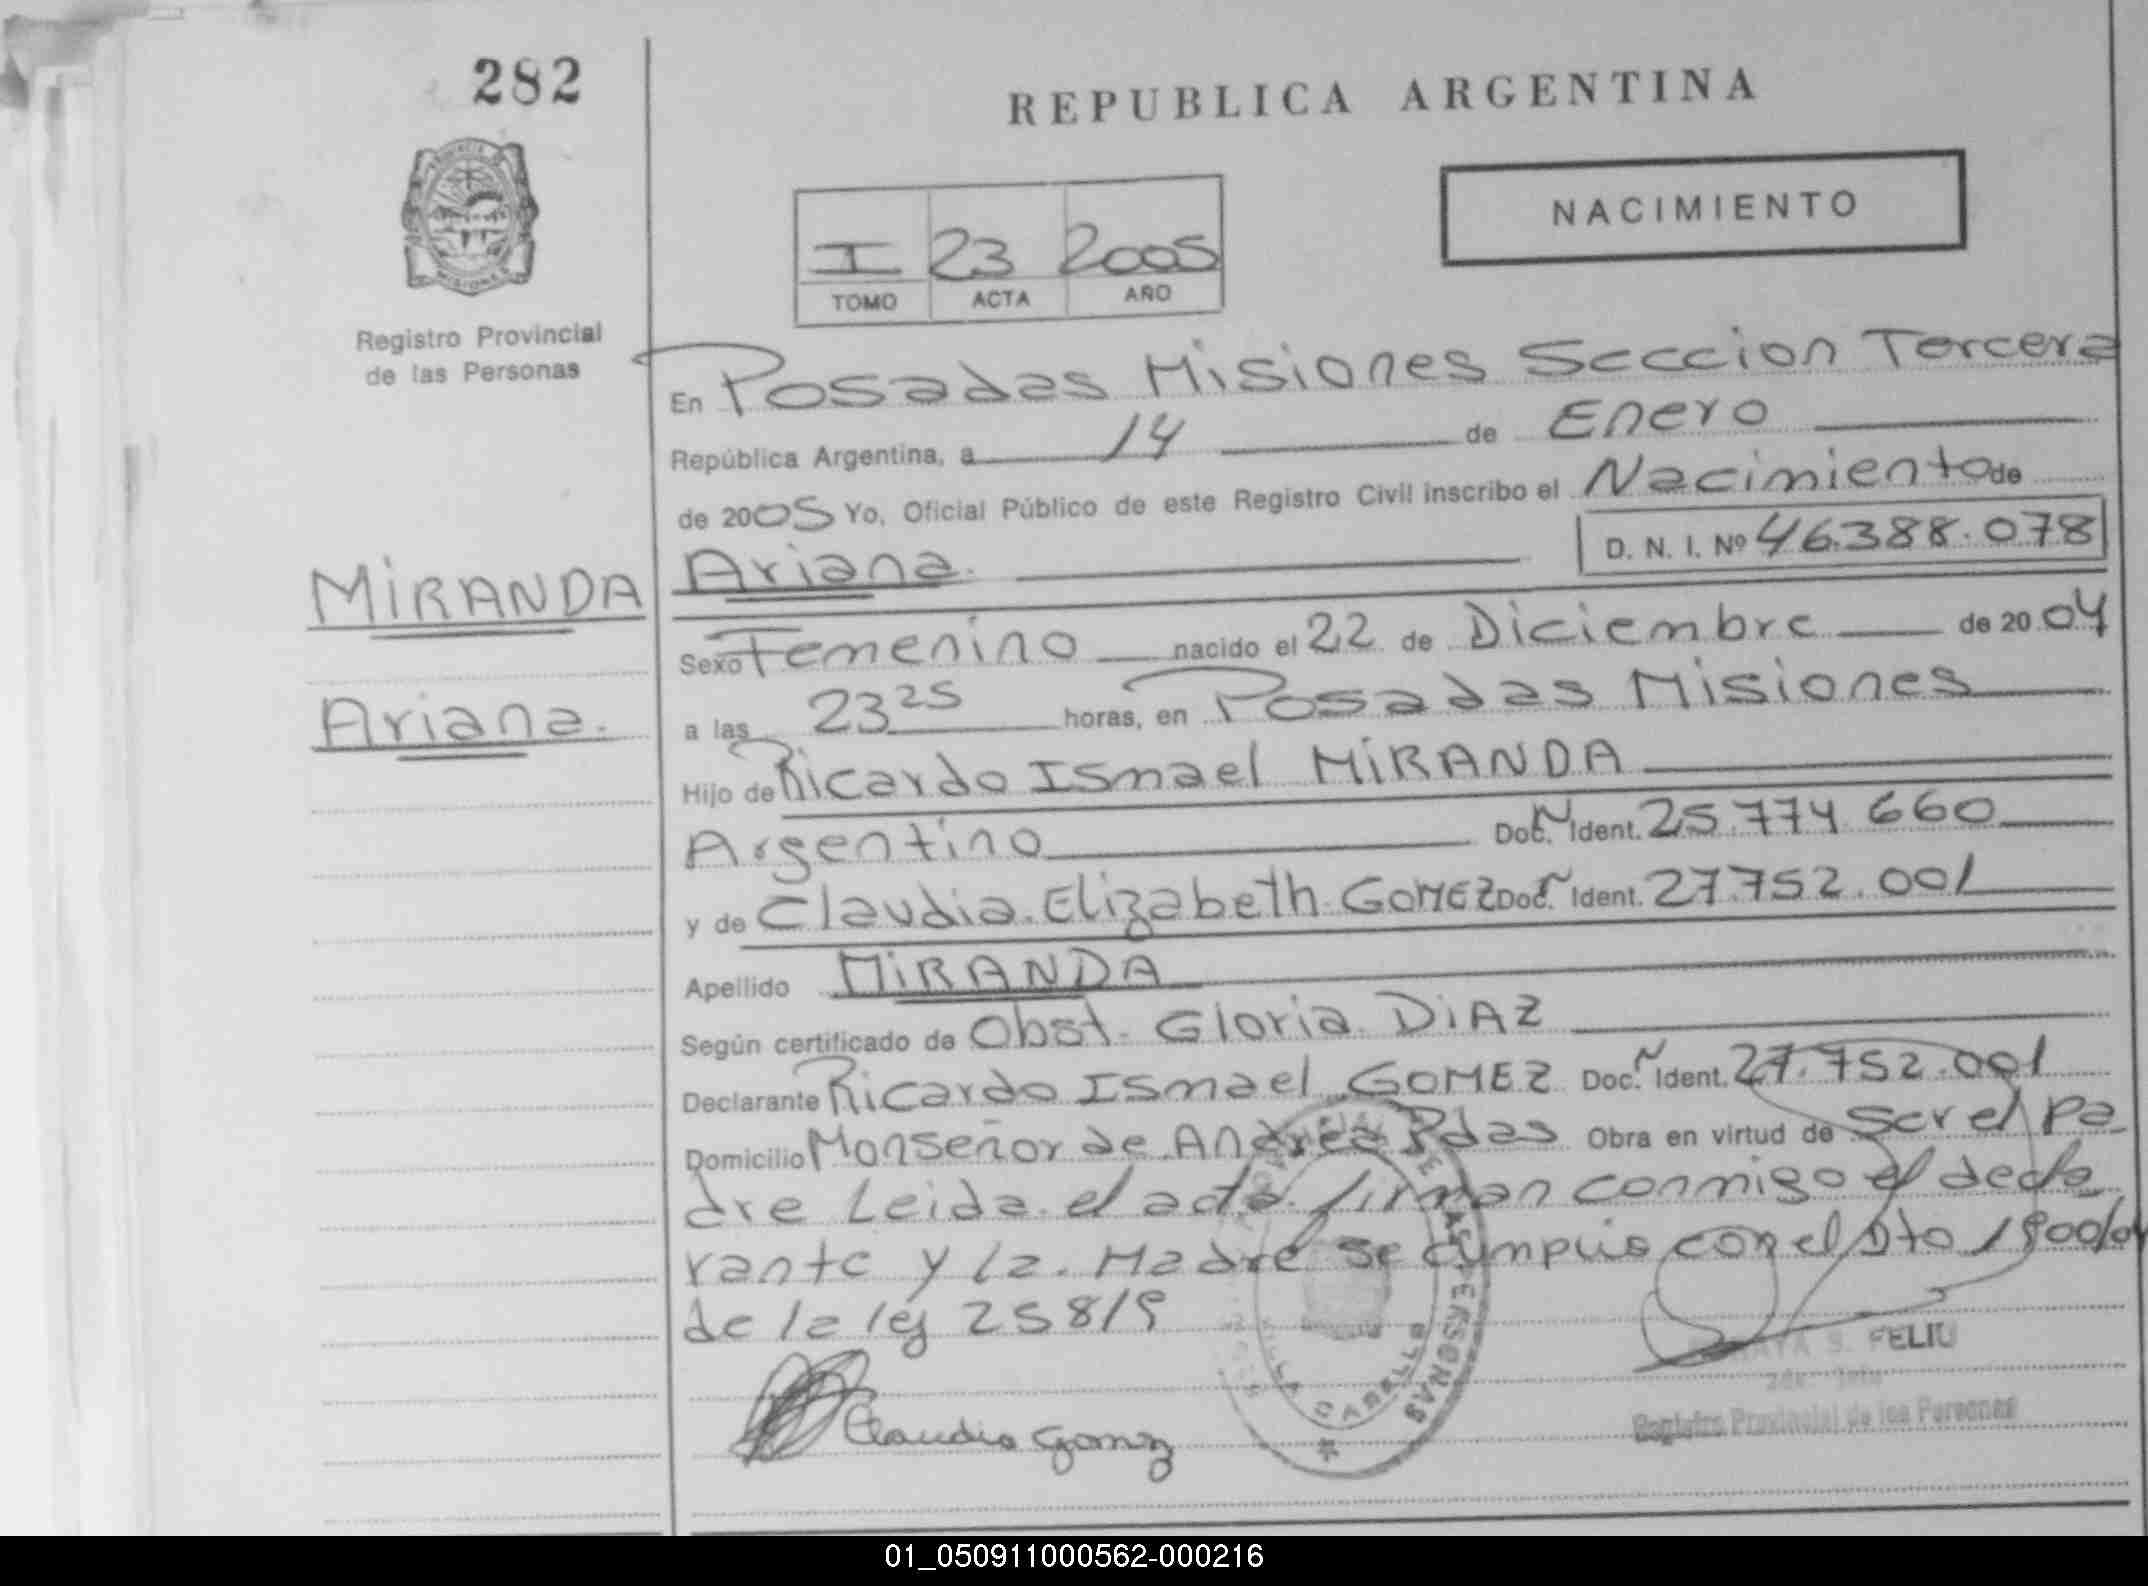 282
REPUBLICA ARGENTINA
NACIMIENTO
I 23 2005
TOMO ACTA AÑO
Registro Provincial
de las Personas
En Posadas Misiones Seccion Tercera
República Argentina, a 14 de Enero
de 2005 Yo, Oficial Público de este Registro Civil inscribo el Nacimiento de
D. N. I. Nº 46.388.078
MiRANDA Ariana.
Sexo Femenino nacido el 22 de Diciembre de 2004
Ariana.
a las 23 25 horas, en Posadas Misiones
Hijo de Ricardo Ismael MiRANDA
Argentino Doc. Ident. 25.774 660
y de Claudia Elizabeth GOMEZ Doc. Ident. 27.752.001
Apellido MiRANDA
Según certificado de Obst. Gloria DiAZ
Declarante Ricardo Ismael GOMEZ Doc. Ident. 27.752.001
Domicilio Monseñor de Andrea Pdas Obra en virtud de ser el Pa
dre Leida el acta firman conmigo el decla
rante y la Madre se cumplio con el Dto 1900/04
de la ley 25819
Claudia Gomez
PERSONAS
S. FELIU
Registro Provincial de las Personas
01_050911000562-000216